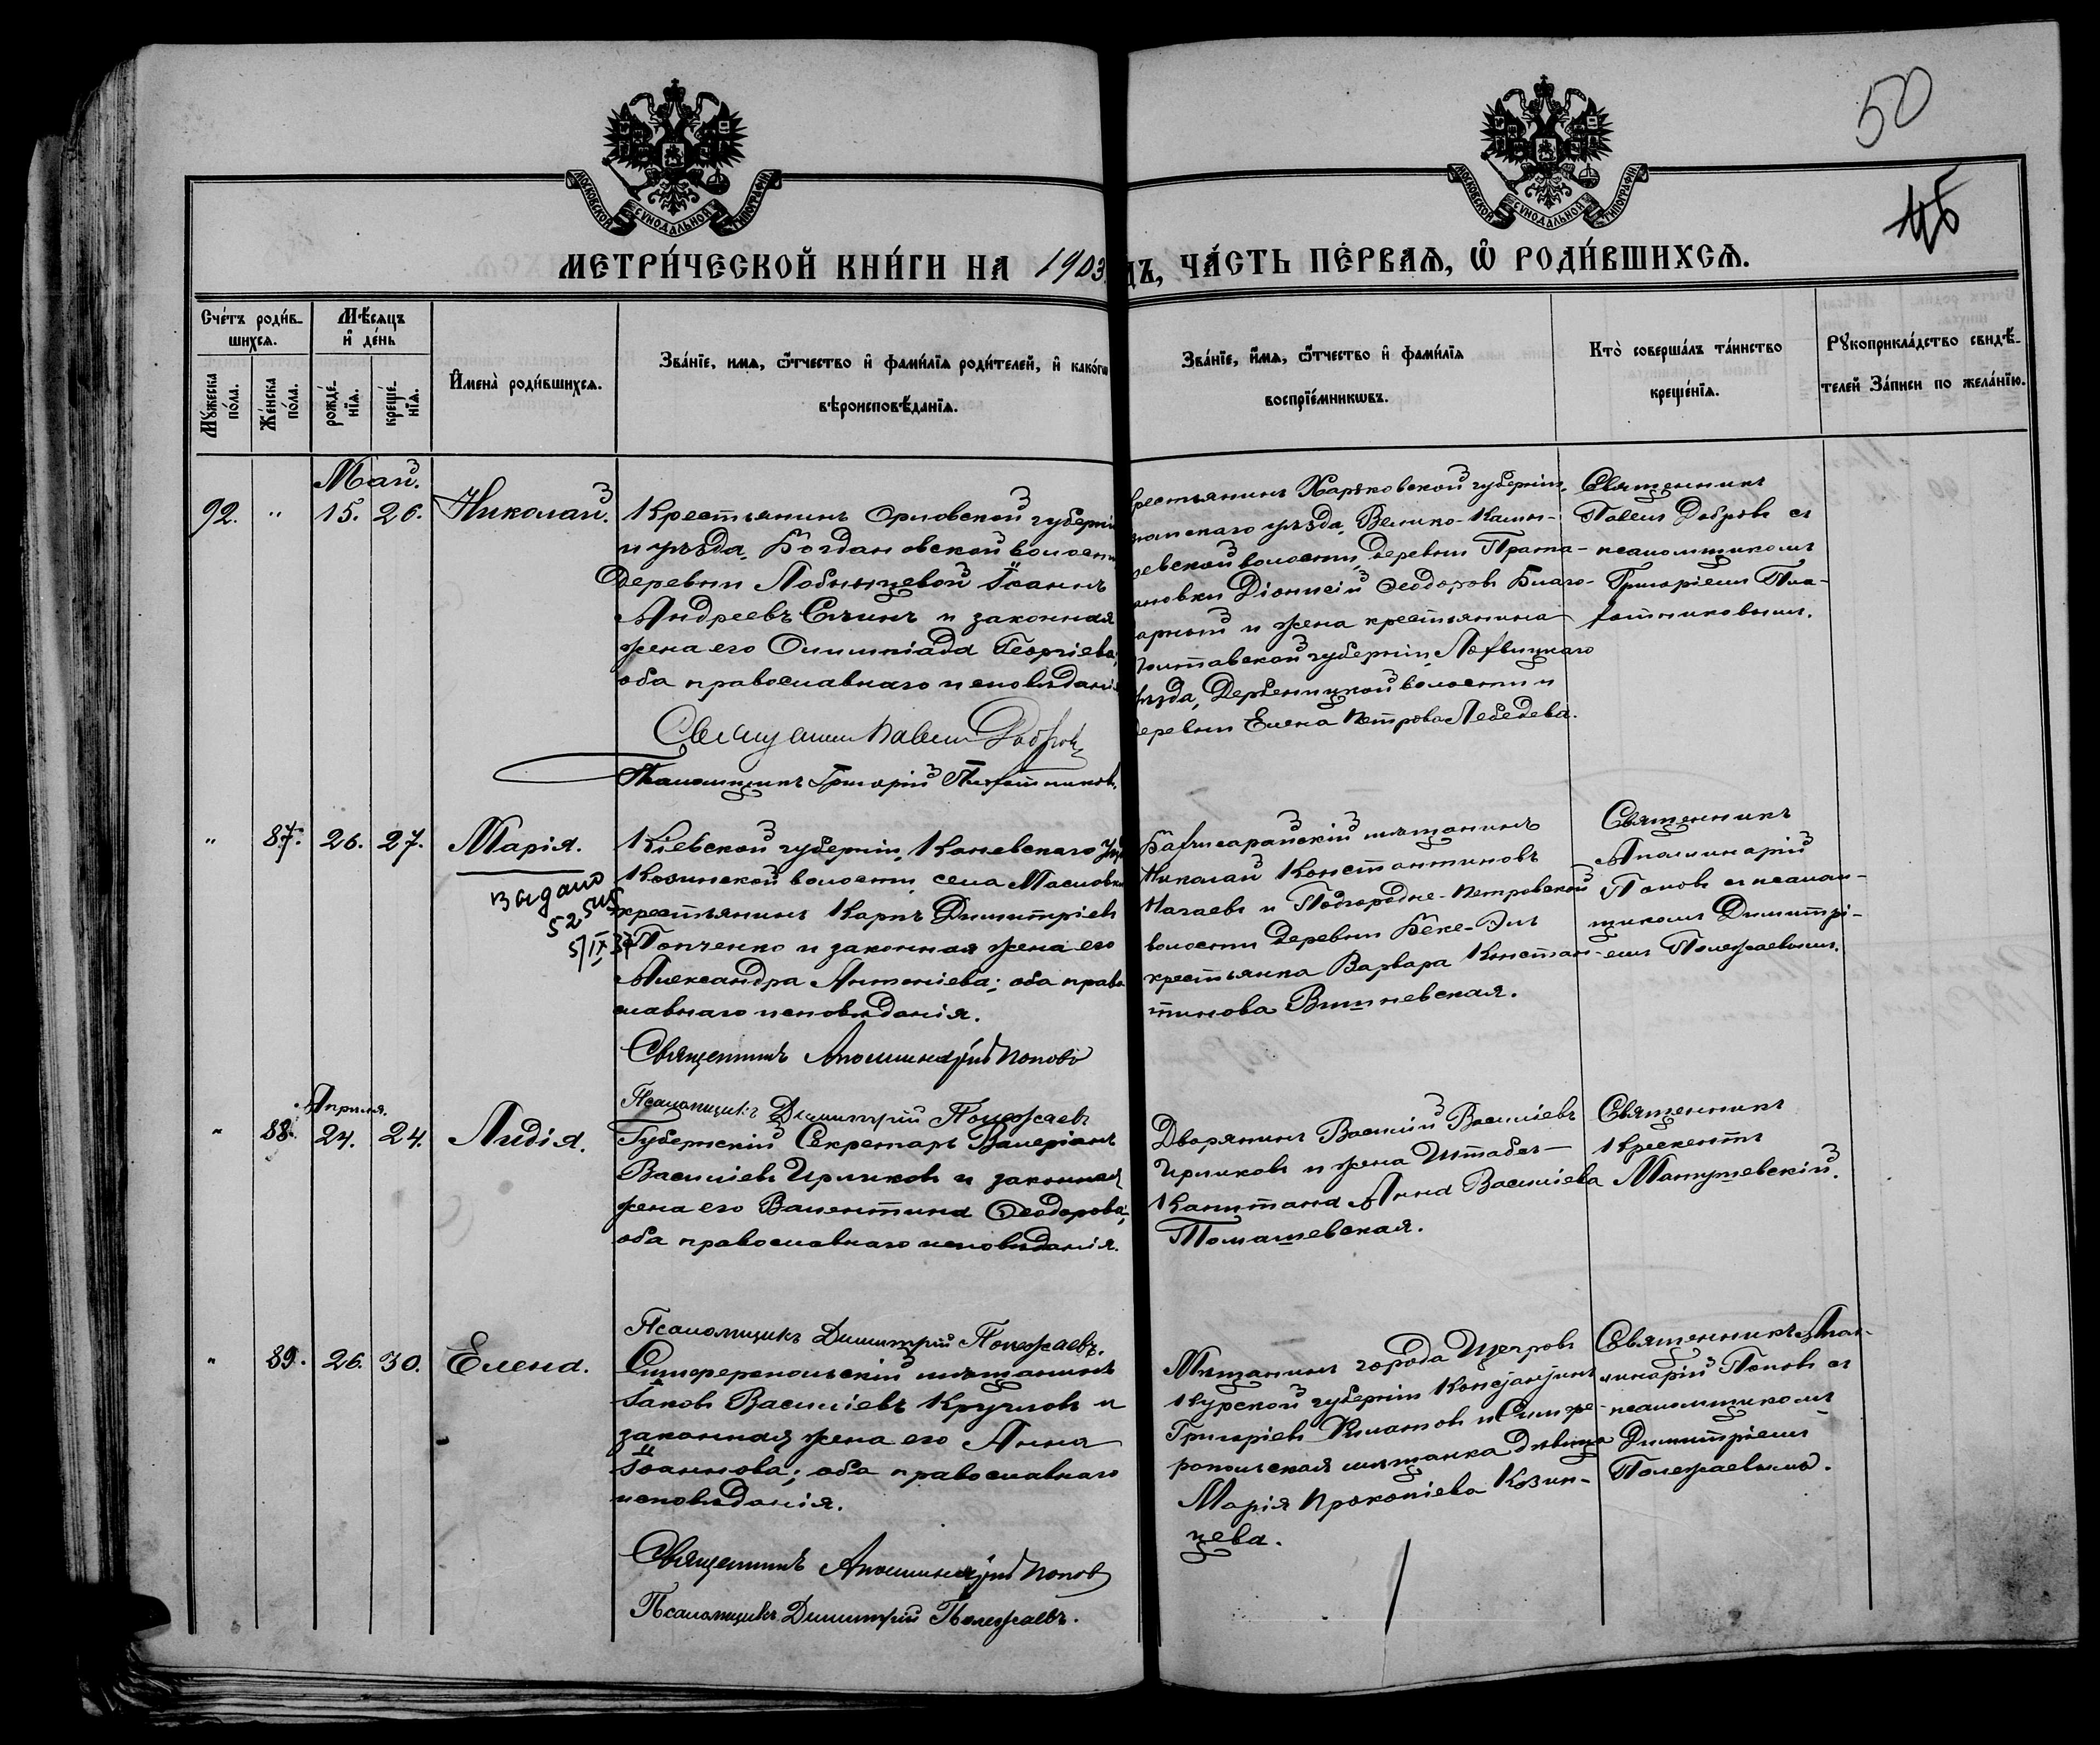 50
МОСКОВСКОЙ СУНОДАЛЬНОЙ ТИПОГРАФІИ
МОСКОВСКОЙ СУНОДАЛЬНОЙ ТИПОГРАФІИ
МЕТРИ́ЧЕСКОЙ КНИ́ГИ НА 1903
ДЪ, ЧА́СТЬ ПЕ́РВАѦ, Ѡ РОДИ́ВШИХСѦ.
Сче́тъ роди́в-
шихсѧ.
Мꙋ́жеска по́ла.
Же́нска по́ла.
Мѣ́сяцъ и҆ де́нь
рожде́-нїѧ.
креще́-нїѧ.
И҆мена̀ роди́вшихсѧ.
Зва́нїе, имѧ, ѻ҆́тчество и҆ фами́лїѧ роди́телей, и҆ како́гѡ
вѣроисповѣ́данїѧ.
Зва́нїе, и҆́мѧ, ѻ҆́тчество и҆ фами́лїѧ
воспрїе́мникѡвъ.
Кто̀ соверша́лъ та́инство
креще́нїѧ.
Рꙋкоприкла́дство свидѣ́-
телей За́писи по жела́нїю.
Май.
92. " 15. 26. Николай.
Крестьянинъ Орловской губерніи
и уѣзда, Богдановской волости
деревни Лобынцевой Іоаннъ
Андреевъ и законная
жена его Олимпіада Георгіева,
оба православнаго исповѣданія
Священникъ Павелъ Добровъ
Псаломщикъ Григорій
рестьянинъ Харьковской губерніи,
уѣзда, Велико-
евской волости, деревни
ановки Діонисій Ѳеодоровъ Благо-
дарный и жена крестьянина
Полтавской губерніи, Лохвицкаго
уѣзда, волости и
деревни Елена Петрова Лебедева.
Священникъ
Павелъ Добровъ съ
псаломщикомъ
Григоріемъ

" 87. 26. 27. Марія.
Выдано
5/IX 37
Кіевской губерніи, Каневскаго уѣз
Козинской волости, села Масловки
крестьянинъ Карпъ Димитріевъ
Попченко и законная жена его
Александра Антоніева; оба право
славнаго исповѣданія.
Священникъ Аполлинарій Поповъ
Псаломщикъ Димитрій Полежаевъ
Бахчисарайскій мѣщанинъ
Николай Константиновъ
Нагаевъ и Подгородне-Петровской
волости деревни Беке-Эли
крестьянка Варвара Констан-
тинова Вишневская.
Священникъ
Аполлинарій
Поповъ съ псалом-
щикомъ Димитрі-
емъ Полежаевымъ.
Апрѣля.
" 88. 24. 24. Лидія.
Губернскій Секретарь Валеріанъ
Васильевъ Ирликовъ и законная
жена его Валентина Ѳеодорова;
оба православнаго исповѣданія.
Псаломщикъ Димитрій Полежаевъ.
Дворянинъ Василій Васильевъ
Ирликовъ и жена Штабсъ-
Капитана Анна Васильева
Томашевская.
Священникъ
Крескентъ
Матушевскій.
" 89. 26. 30. Елена.
Симферопольскій мѣщанинъ
Іаковъ Васильевъ Кругловъ и
законная жена его Анна
Іоаннова; оба православнаго
исповѣданія.
Священникъ Аполлинарій Поповъ
Псаломщикъ Димитрій Полежаевъ.
Мѣщанинъ города Щигровъ
Курской губерніи Константинъ
Григоріевъ и Симфе-
ропольская мѣщанка дѣвица
Марія Прокопіева Козин-
цева.
Священникъ Апол-
линарій Поповъ съ
псаломщикомъ
Димитріемъ
Полежаевымъ.